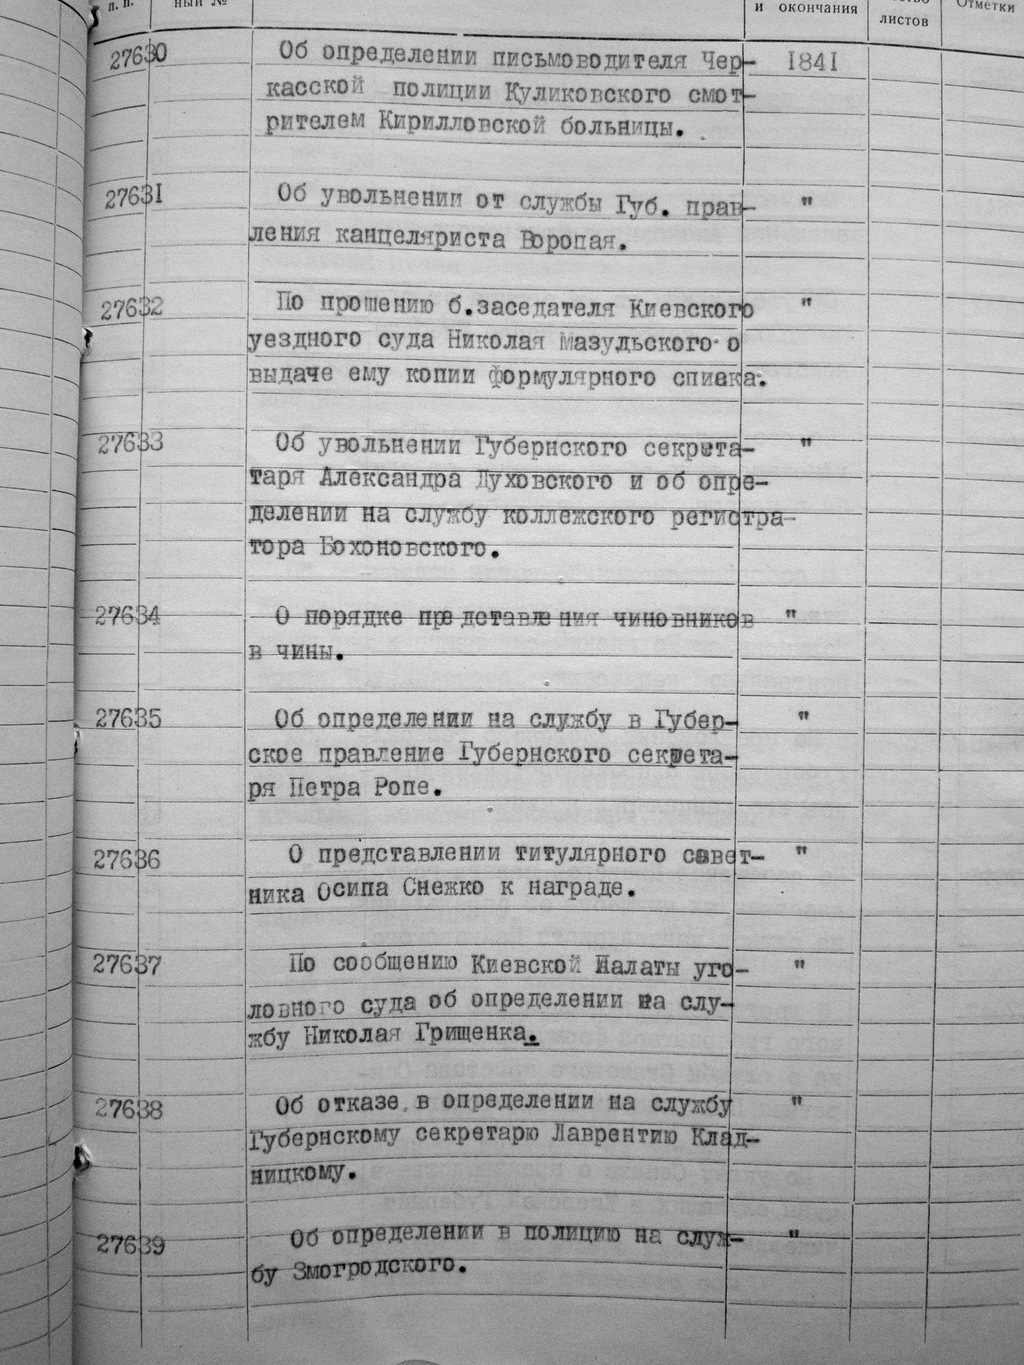 п. п.
ный №
и окончания
листов
Отметки
27630 Об определении письмоводителя Чер- 1841
касской полиции Куликовского смот-
рителем Кирилловской больницы.
27631 Об увольнении от службы Губ. прав- "
ления канцеляриста Воропая.
27632 По прошению б.заседателя Киевского "
уездного суда Николая Мазудьского о
выдаче ему копии формулярного списка.
27633 Об увольнении Губернского секрета- "
таря Александра Духовского и об опре-
делении на службу коллежского регистра-
тора Бохоновского.
27634 О порядке представления чиновников "
в чины.
27635 Об определении на службу в Губер- "
ское правление Губернского секрета-
ря Петра Ропе.
27636 О представлении титулярного совет- "
ника Осипа Снежко к награде.
27637 По сообщению Киевской Палаты уго- "
ловного суда об определении на слу-
жбу Николая Грищенка.
27638 Об отказе в определении на службу "
Губернскому секретарю Лаврентию Клад-
ницкому.
27639 Об определении в полицию на служ- "
бу Змогродского.